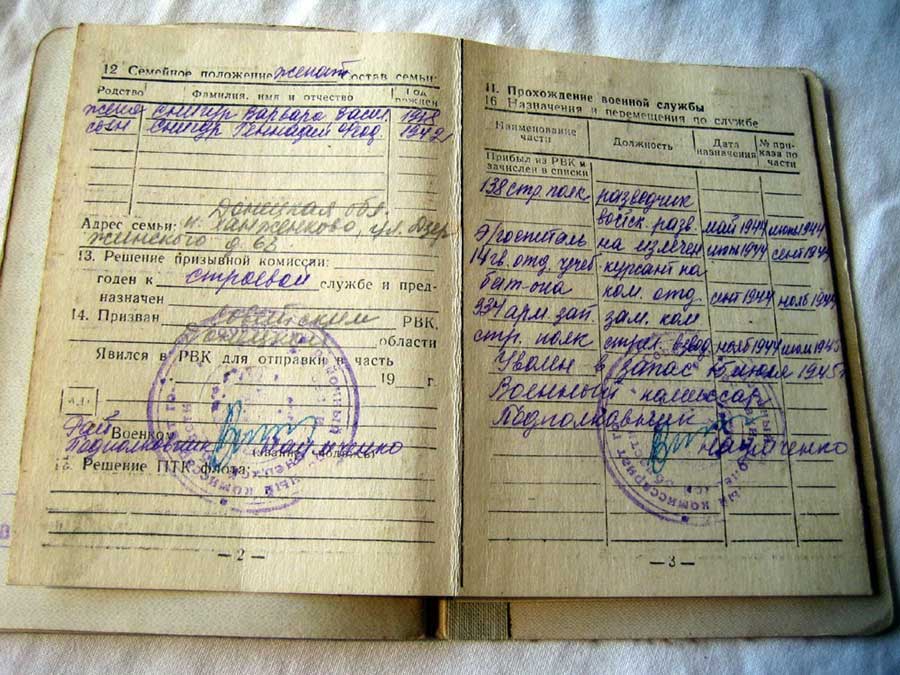 12 Семейное положение женат состав семьи:
Родство Фамилия, имя и отчество Год рожден.
жена Снигур Варвара Васил. 1918
сын Снигур Геннадий 1942
Донецкая обл.
Адрес семьи: Ханженково, ул. Дзер
жинского д. 63
13. Решение призывной комиссии:
годен к строевой службе и пред-
назначен
14. Призван РВК,
области
Явился в РВК для отправки в часть
19 г.
Рай Военком
Подполковник
15. Решение ПТК флота:
— 2 —
II. Прохождение военной службы
16 Назначения и перемещения по службе
Наименование части Должность Дата назначения № при-каза по части
Прибыл из РВК и
зачислен в списки
138 стр. полк разведчик
войск. разв. май 1944 июнь 1944
Э/госпиталь на излечен. июнь 1944 сент 1944
14 гв. отд. учеб курсант на
бат-она ком. отд. сент 1944 нояб 1944
334 арм. зап. зам. ком
стр. полк стрел. взвод нояб 1944 июль 1945
Уволен в запас июля 1945г
Военный комиссар
Подполковник
— 3 —